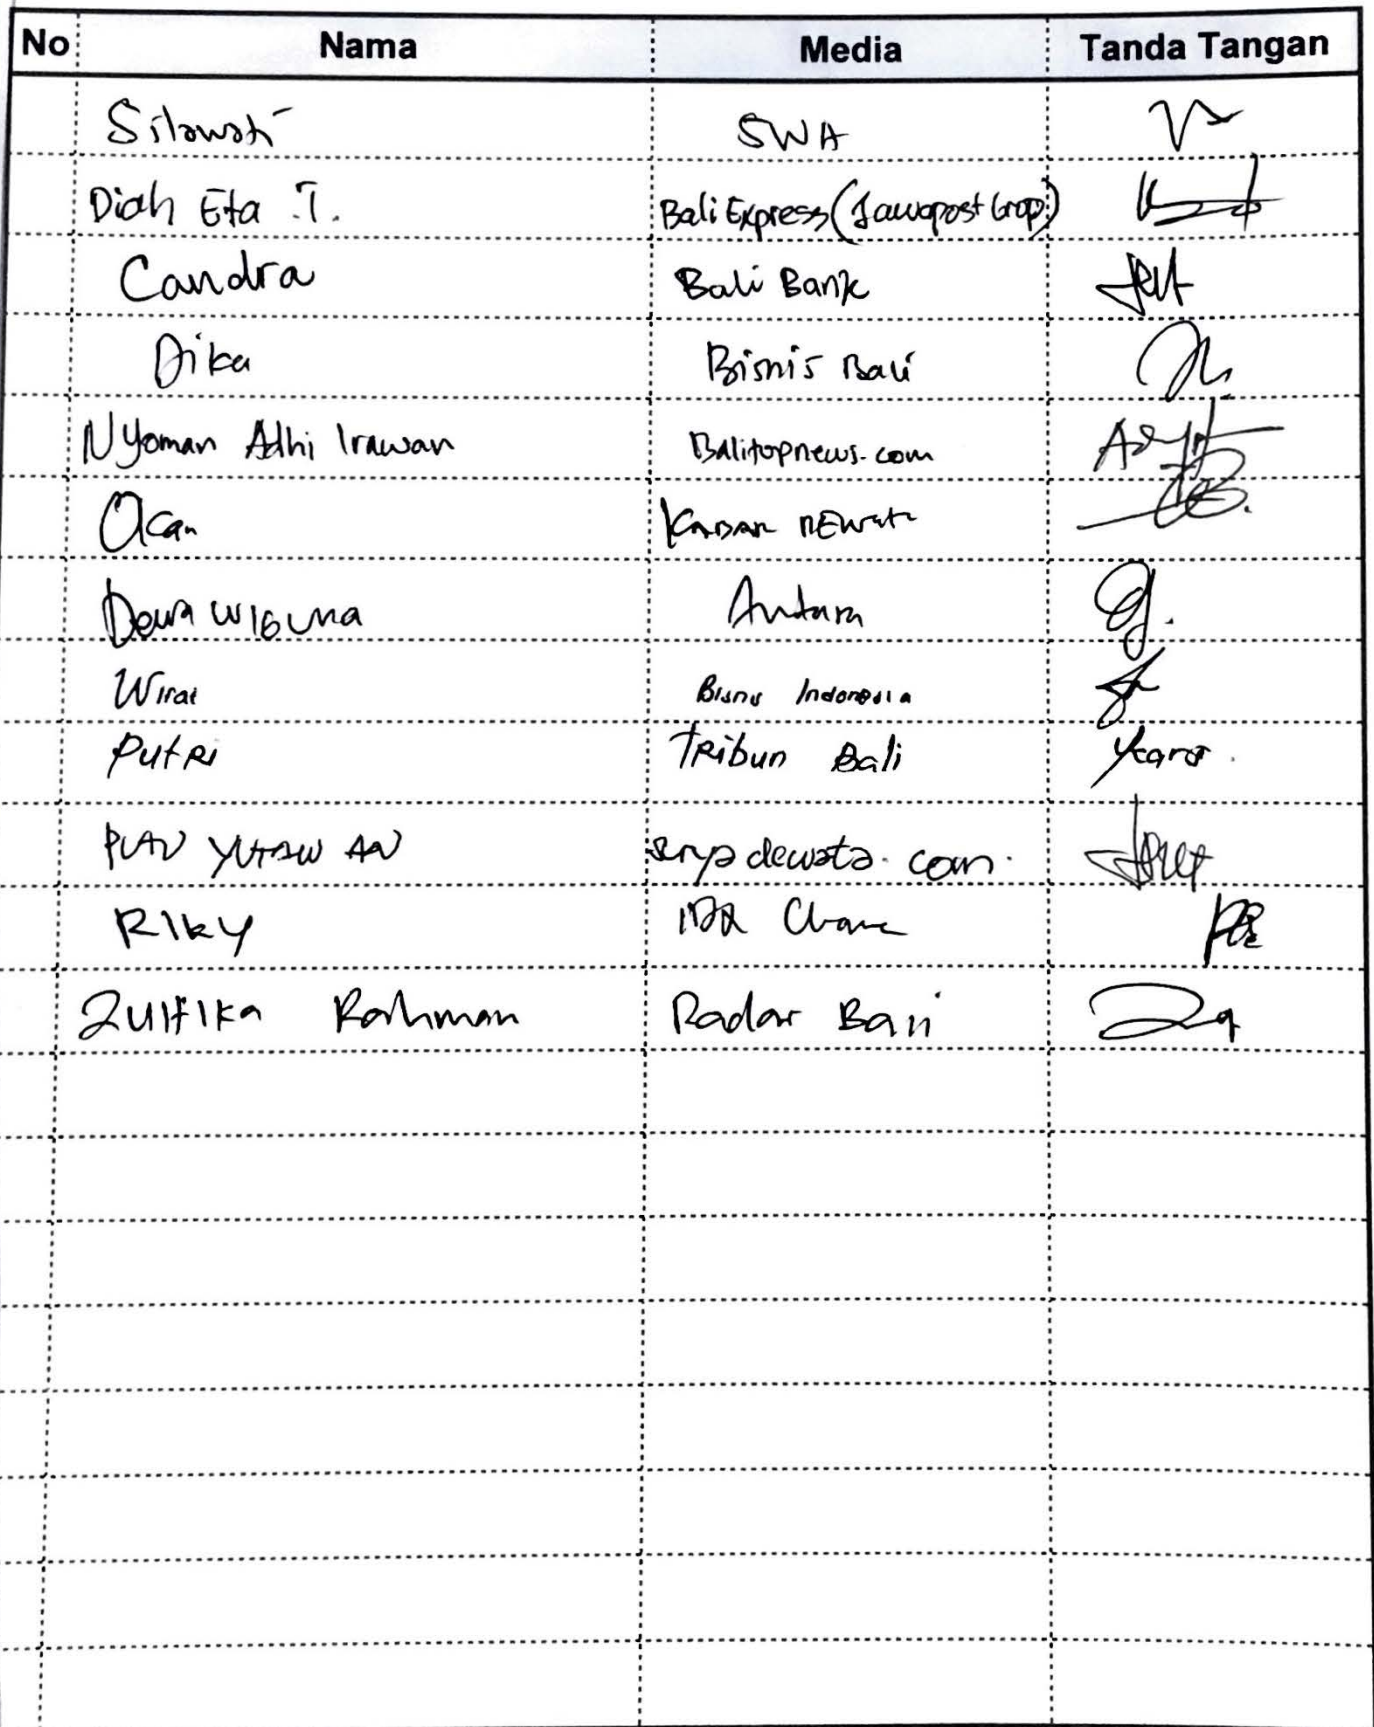 No Nama Media Tanda Tangan
Silawati SWA
Diah Eta .T. Bali Express (Jawapost Grop)
Candra Bali Bank
Dika Bisnis Bali
Nyoman Adhi Irawan Balitopnews.com
Ocan
Dewa Wiguna Antara
Bisnis Indonesia
Putri Tribun Bali
dewata.com.
Riky
Zulfika Rahman Radar Bali